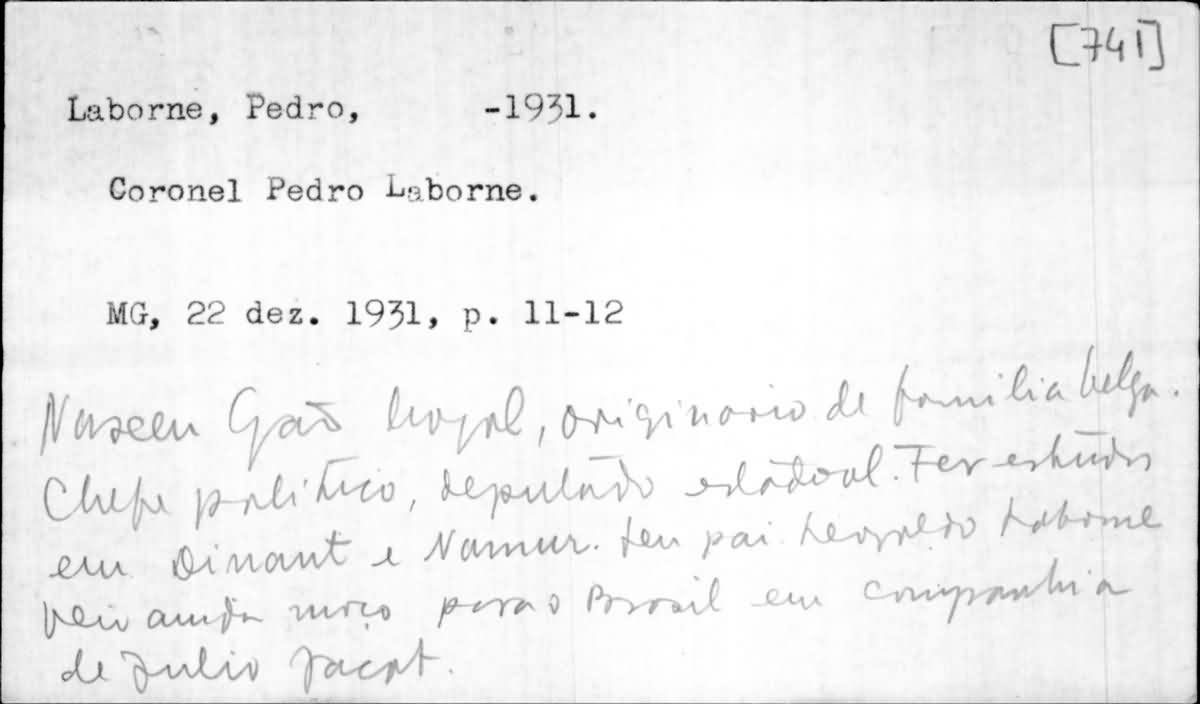 [741]
Laborne, Pedro, -1931.
Coronel Pedro Laborne.
MG, 22 dez. 1931, p. 11-12
Nasceu Grão Mogol, originario de familia belga.
Chefe politico, deputado estadoal. Fez estudos
em Dinant e Namur. Seu pai Leopoldo Laborne
veiu ainda moço para o Brasil em companhia
de Julio